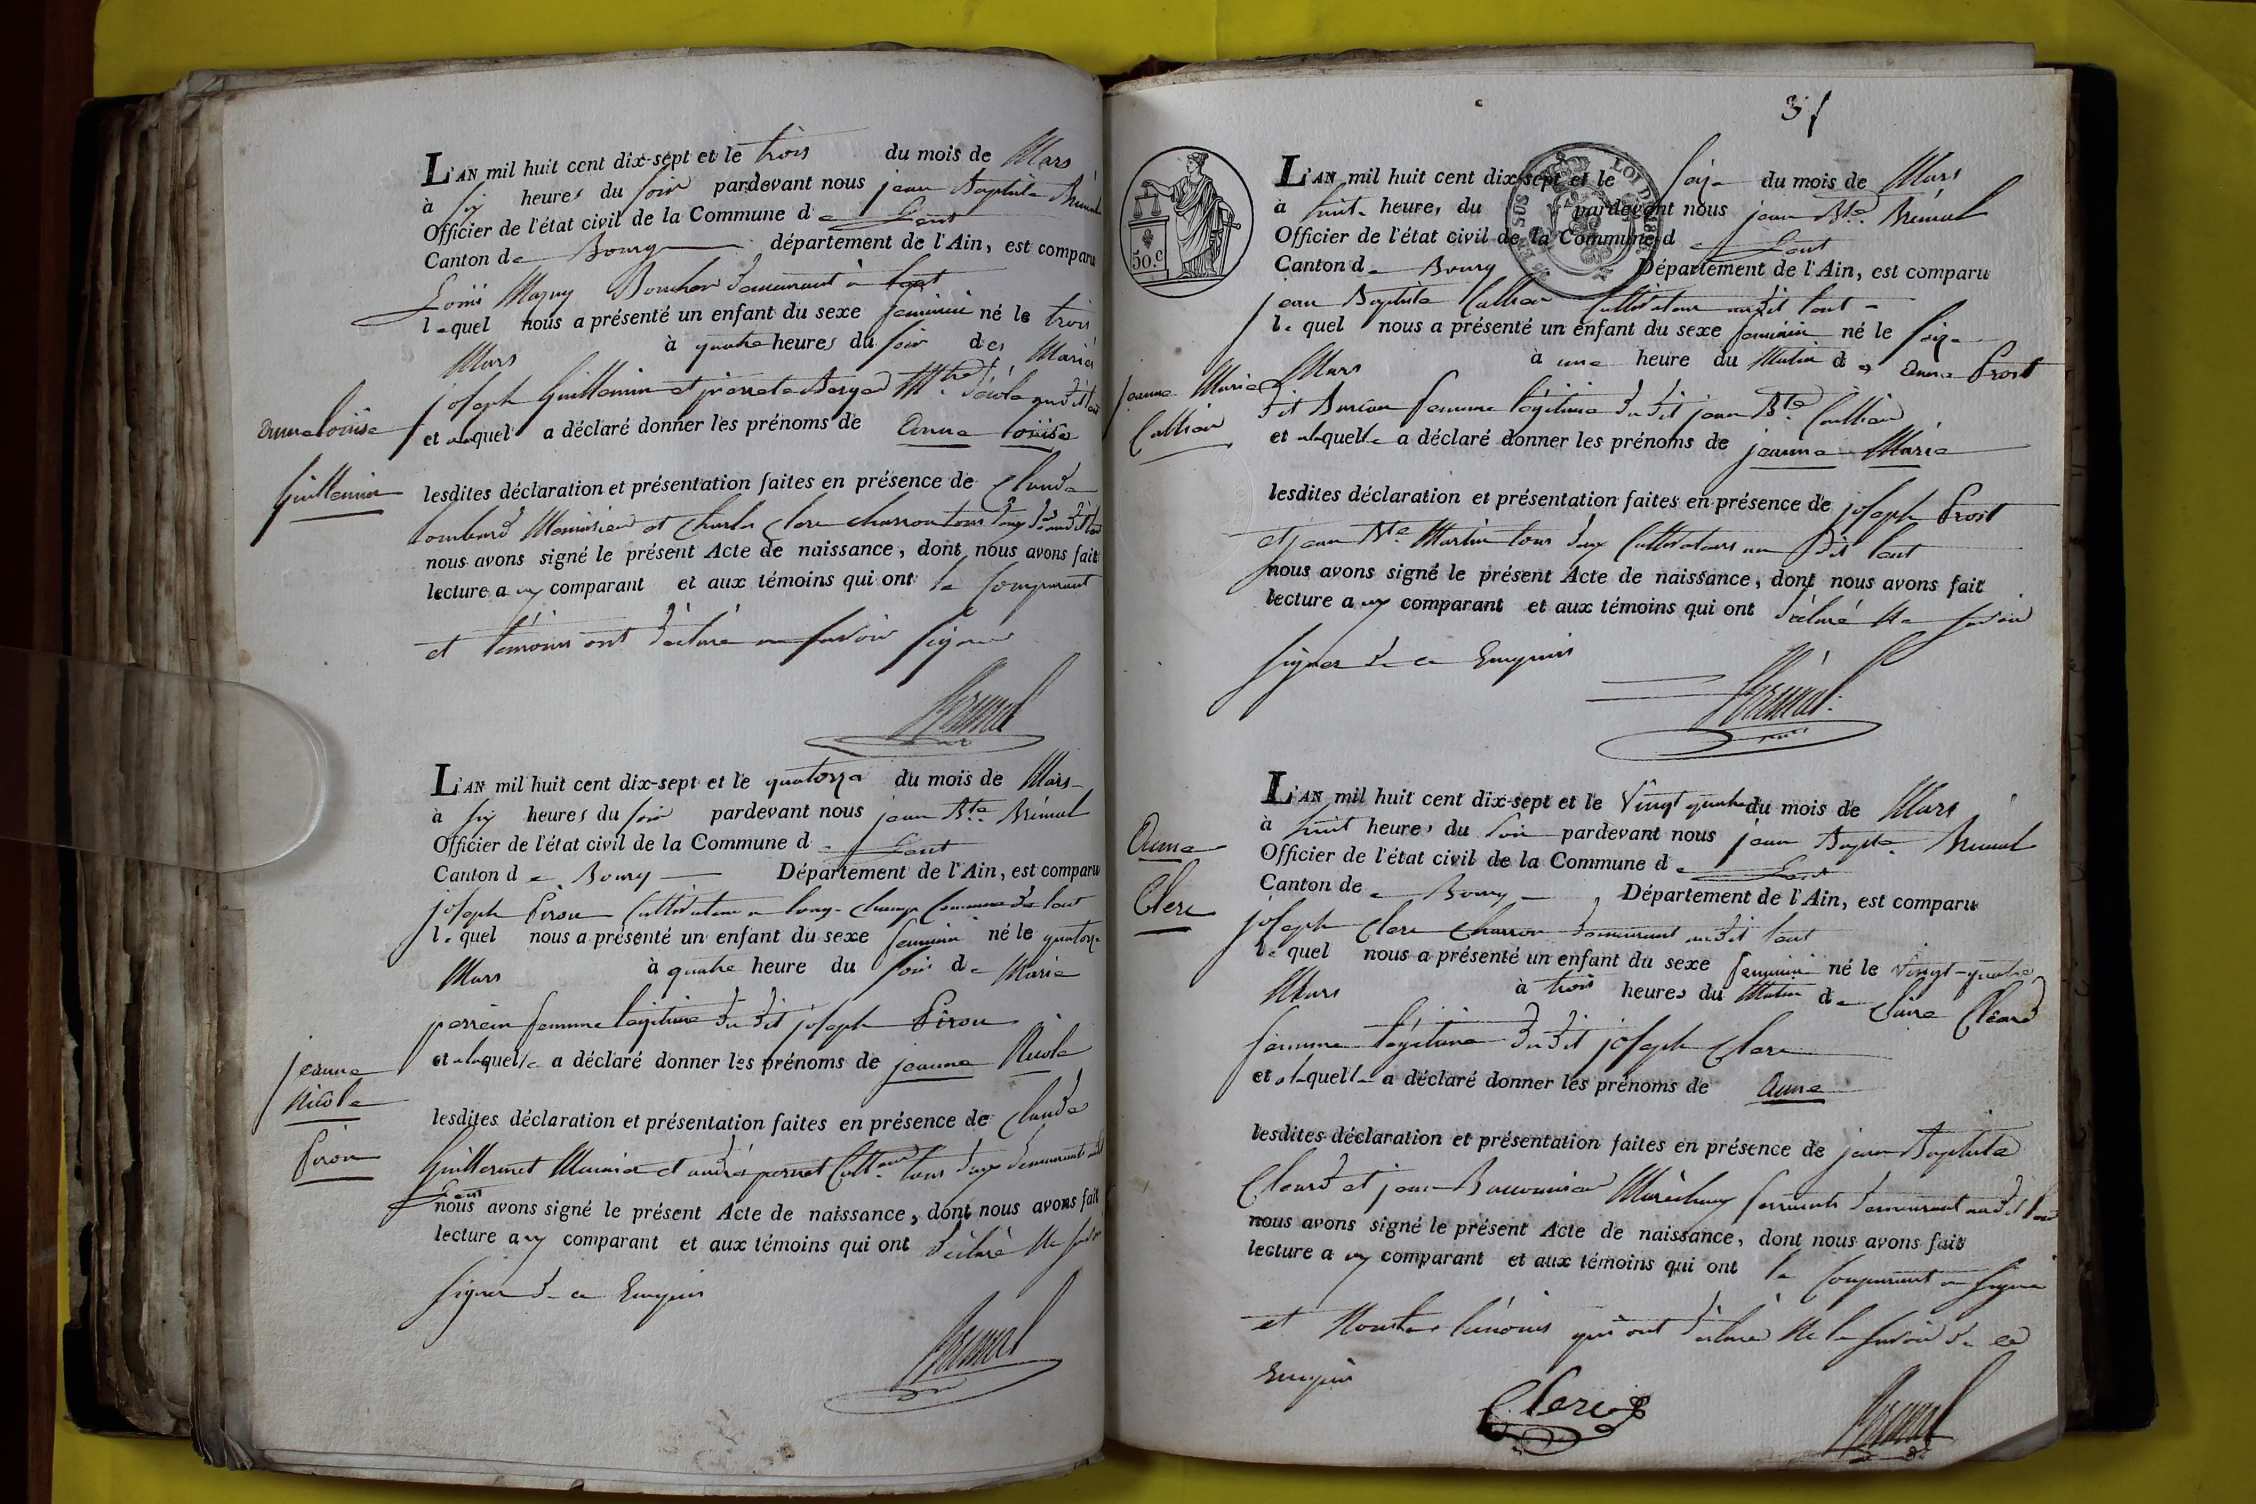 L'AN mil huit cent dix-sept et le trois du mois de Mars
à six heures du soir pardevant nous jean Baptiste Brémal
Officier de l'état civil de la Commune de Lent
Canton de Bourg département de l'Ain, est comparu
Loüis Mazuy Boucher demeurant à Lent
lequel nous a présenté un enfant du sexe feminin né le trois
Mars à quatre heures du soir des Mariés
joseph Guillemin et pierrete Berger Mtre d'école audit Lent
et auquel a déclaré donner les prénoms de Anne Loüise
Anne Loüise
Guillemin
lesdites déclaration et présentation faites en présence de Claude
Lombard Menuisier et Charles Clerc charron tous deux dudit Lent
nous avons signé le présent Acte de naissance, dont nous avons fait
lecture au comparant et aux témoins qui ont le Comparant
et témoins ont déclaré ne savoir signer
Brémal
L'AN mil huit cent dix-sept et le quatorze du mois de Mars
à six heures du soir pardevant nous jean Bte Brémal
Officier de l'état civil de la Commune de Lent
Canton de Bourg Département de l'Ain, est comparu
joseph Piron Cultivateur a Long-champ Commune de Lent
lequel nous a présenté un enfant du sexe feminin né le quatorze
Mars à quatre heure du soir de Marie
perrein femme légitime dudit joseph Piron
et a laquelle a déclaré donner les prénoms de jeanne Nicole
jeanne
Nicole
Piron
lesdites déclaration et présentation faites en présence de Claude
Guillermet Munier et andré pernet Cultur tous deux demeurants audit
Lent
nous avons signé le présent Acte de naissance, dont nous avons fait
lecture aux comparant et aux témoins qui ont déclaré ne savoir
signer de ce Enquis
Brémal
37
50.c
LOI DU 28
L'AN mil huit cent dix-sept et le seize du mois de Mars
à huit heure, du pardevant nous jean Bte Brémal
Officier de l'état civil de la Commune de Lent
Canton de Bourg Département de l'Ain, est comparu
jean Baptiste Cullian Cultivateur audit Lent
lequel nous a présenté un enfant du sexe feminin né le seize
Mars à une heure du Matin de Anne Prost
dit Bureau femme légitime dudit jean Bte Cullian
et a laquelle a déclaré donner les prénoms de jeanne Marie
jeanne Marie
Cullian
lesdites déclaration et présentation faites en présence de joseph Prost
et jean Bte Martin tous deux Cultivateurs audit Lent
nous avons signé le présent Acte de naissance, dont nous avons fait
lecture aux comparant et aux témoins qui ont déclaré ne savoir
signer de ce Enquis
Brémal
L'AN mil huit cent dix-sept et le vingt quatre du mois de Mars
à huit heures du soir pardevant nous jean Bapte Brémal
Officier de l'état civil de la Commune de Lent
Canton de Bourg Département de l'Ain, est comparu
joseph Clerc Charron demeurant audit Lent
lequel nous a présenté un enfant du sexe feminin né le vingt-quatre
Mars à trois heures du Matin de Claire Cléard
femme légitime dudit joseph Clerc
et a laquelle a déclaré donner les prénoms de Anne
Anne
Clerc
lesdites déclaration et présentation faites en présence de jean Baptiste
Cleard et jean Maréchaux ferrants demeurant audit Lent
nous avons signé le présent Acte de naissance, dont nous avons fait
lecture aux comparant et aux témoins qui ont le Comparant a signé
et témoins qui ont déclaré ne le savoir de ce
Enquis
Clerc
Brémal